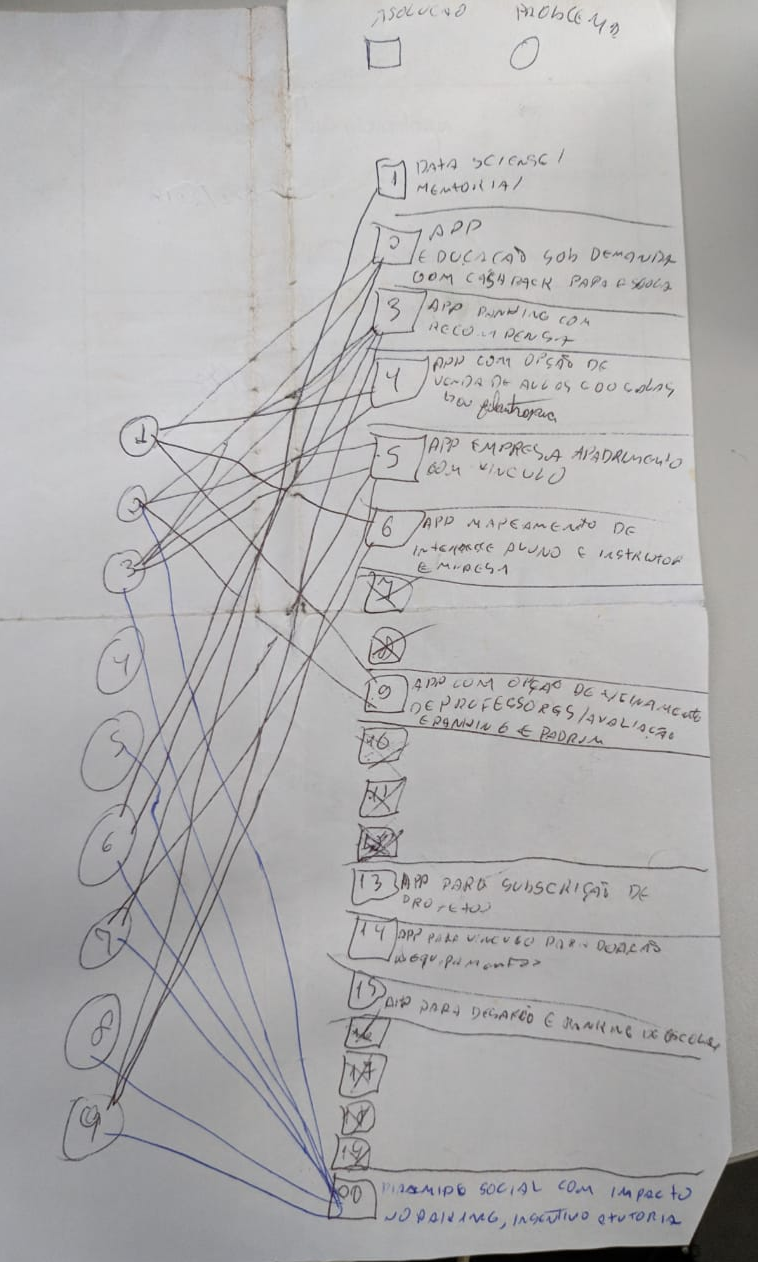 SOLUÇÃO PROBLEMA
1 DATA SCIENSE/
MENTORIA/
2 APP
EDUCAÇÃO SOB DEMANDA
COM CASHBACK PARA ESCOLA
3 APP RANKING COM
RECOMPENSA
4 APP COM OPÇÃO DE
VENDA DE
filantropia
5 APP EMPRESA APADRINHENTO
COM VINCULO
6 APP MAPEAMENTO DE
INTERESSE ALUNO E INSTRUTOR
EMPRESA
7
8
9 APP COM OPÇÃO DE TREINAMENTO
DE PROFESSORES/AVALIAÇÃO
E RANKING E PADRIM
10
11
13 APP PARA SUBSCRIÇÃO DE
PROJETOS
14 APP PARA VINCULO PARA DOAÇÃO
DE EQUIPAMENTOS
15 APP PARA DESAFIO E RANKING DE ESCOLAS
16
17
18
19
20 PIRAMIDE SOCIAL COM IMPACTO
NO RANKING, INSENTIVO A TUTORIA
1
2
3
4
5
6
7
8
9